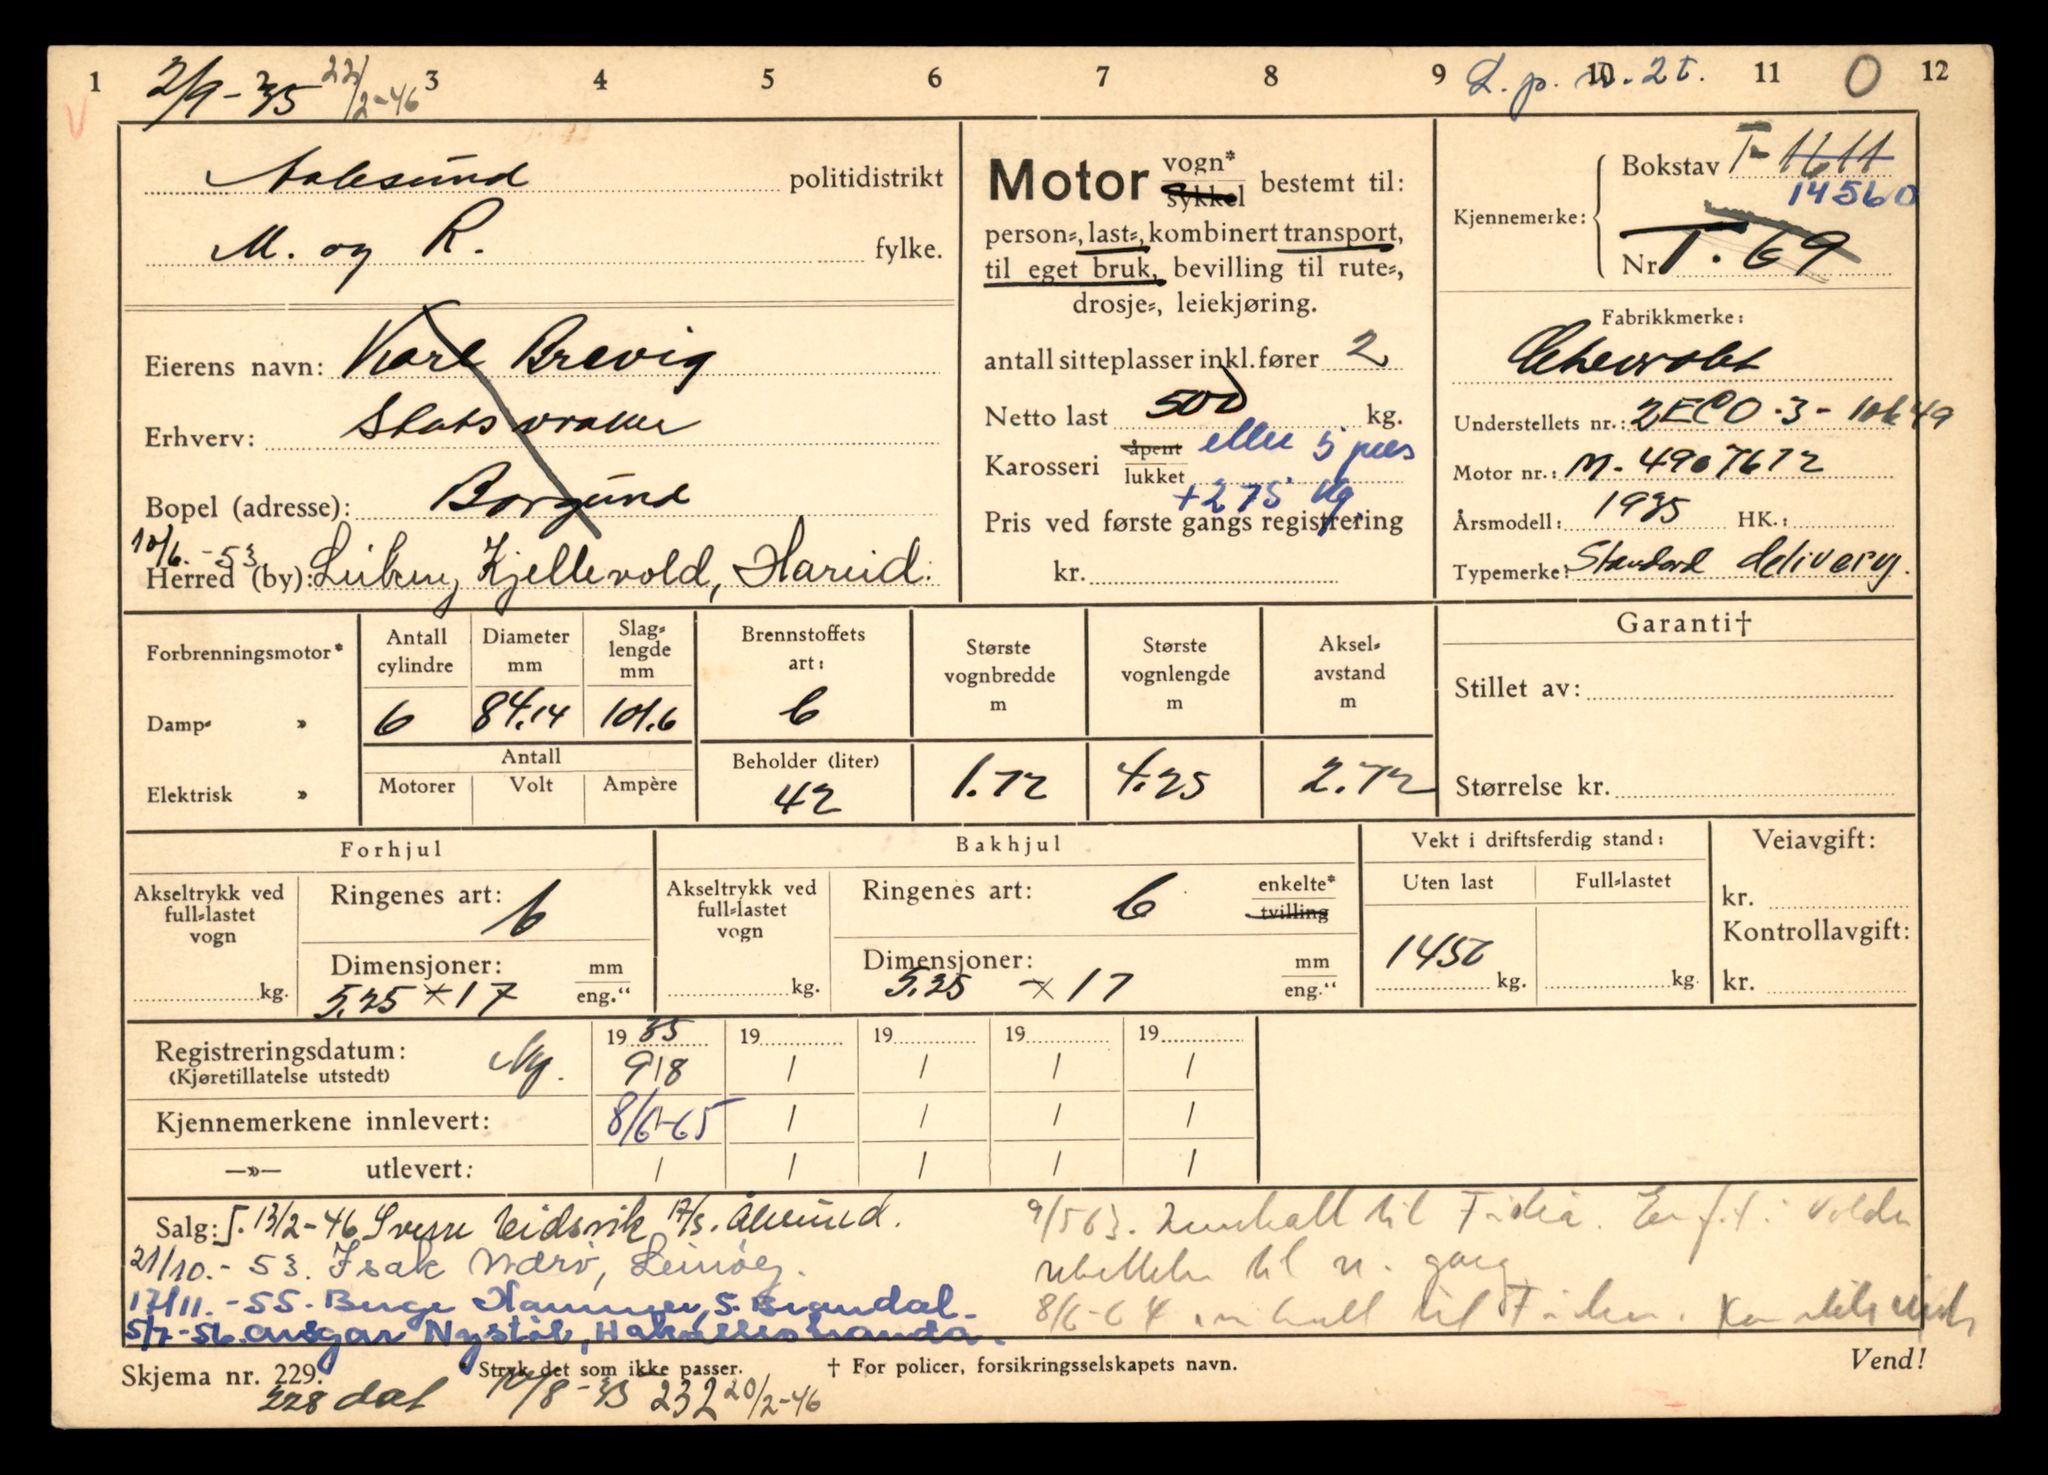 1 2/9-35 22/2-46 3 4 5 6 7 8 9 L. p. 10 2t. 11 O 12
V
Aalesund politidistrikt
M. og R. fylke.
Eierens navn: Kare Brevig
Erhverv: Statsvraker
Bopel (adresse): Borgund
10/6.-53
Herred (by): Kjellevold, Hareid.
Motor vogn* sykkel bestemt til:
person-, last-, kombinert transport,
til eget bruk, bevilling til rute-,
drosje-, leiekjøring.
antall sitteplasser inkl. fører 2
Netto last 500 kg.
Karosseri åpent lukket eller 5 pers
+275 kg
Pris ved første gangs registrering
kr.
Kjennemerke: Bokstav T- 11611
14560
Nr. T. 69
Fabrikkmerke:
Chevrolet
Understellets nr.: 2ECO-3-10649
Motor nr.: M-4907672
Årsmodell: 1935 HK.:
Typemerke: Standard delivery.
Forbrenningsmotor*
Damp- »
Elektrisk »
Antall cylindre 6
Diameter mm 84.14
Slaglengde mm 101.6
Antall
Motorer Volt Ampère
Brennstoffets art: b
Beholder (liter) 42
Største vognbredde m 1.72
Største vognlengde m 4.25
Akselavstand m 2.72
Garanti†
Stillet av:
Størrelse kr.
Forhjul
Akseltrykk ved full-lastet vogn kg.
Ringenes art: b
Dimensjoner: 5.25 x 17 mm eng."
Bakhjul
Akseltrykk ved full-lastet vogn kg.
Ringenes art: b enkelte* tvilling
Dimensjoner: 5.25 x 17 mm eng."
Vekt i driftsferdig stand:
Uten last Full-lastet
1450 kg. kg.
Veiavgift:
kr.
Kontrollavgift:
kr.
Registreringsdatum: Ny. 19 35 19 19 19 19
(Kjøretillatelse utstedt) 9/8 / / / /
Kjennemerkene innlevert: 8/6-65 / / / /
—»— utlevert: / / / / /
Salg: 13/2-46 Sverre Eidsvik 17/5. Ålesund.
21/10.-53. Isak Værø, Leinøy.
17/11.-55. Berge Hammer, S. Brandal.
5/7-56. Ansgar Nystøl,
9/5 63. Innkalt til
til n. gang
8/6-64 innkalt til
Skjema nr. 229. * Stryk det som ikke passer. † For policer, forsikringsselskapets navn. Vend!
228 dat 10/8-35 232 20/2-46